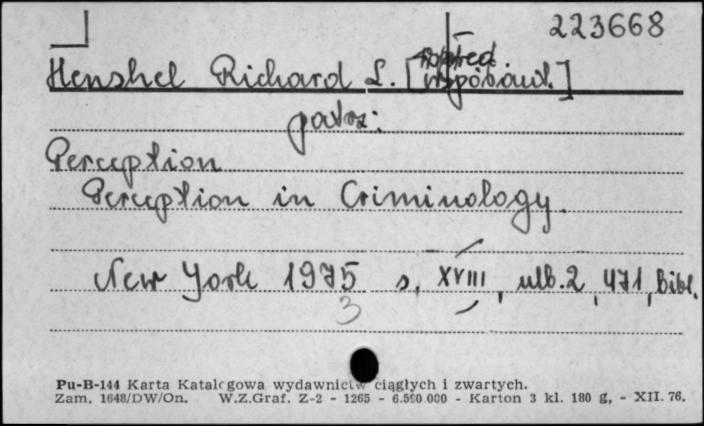 223668
Henshel Richard L. [współaut.]
patrz:
Perception
Perception in Criminology.
New York 1975 s. XVIII, ulb. 2, 471, Bibl.
3
Pu-B-144 Karta Katalogowa wydawnictw ciągłych i zwartych.
Zam. 1648/DW/On. W.Z.Graf. Z-2 - 1265 - 6.500.000 - Karton 3 kl. 180 g, - XII. 76.